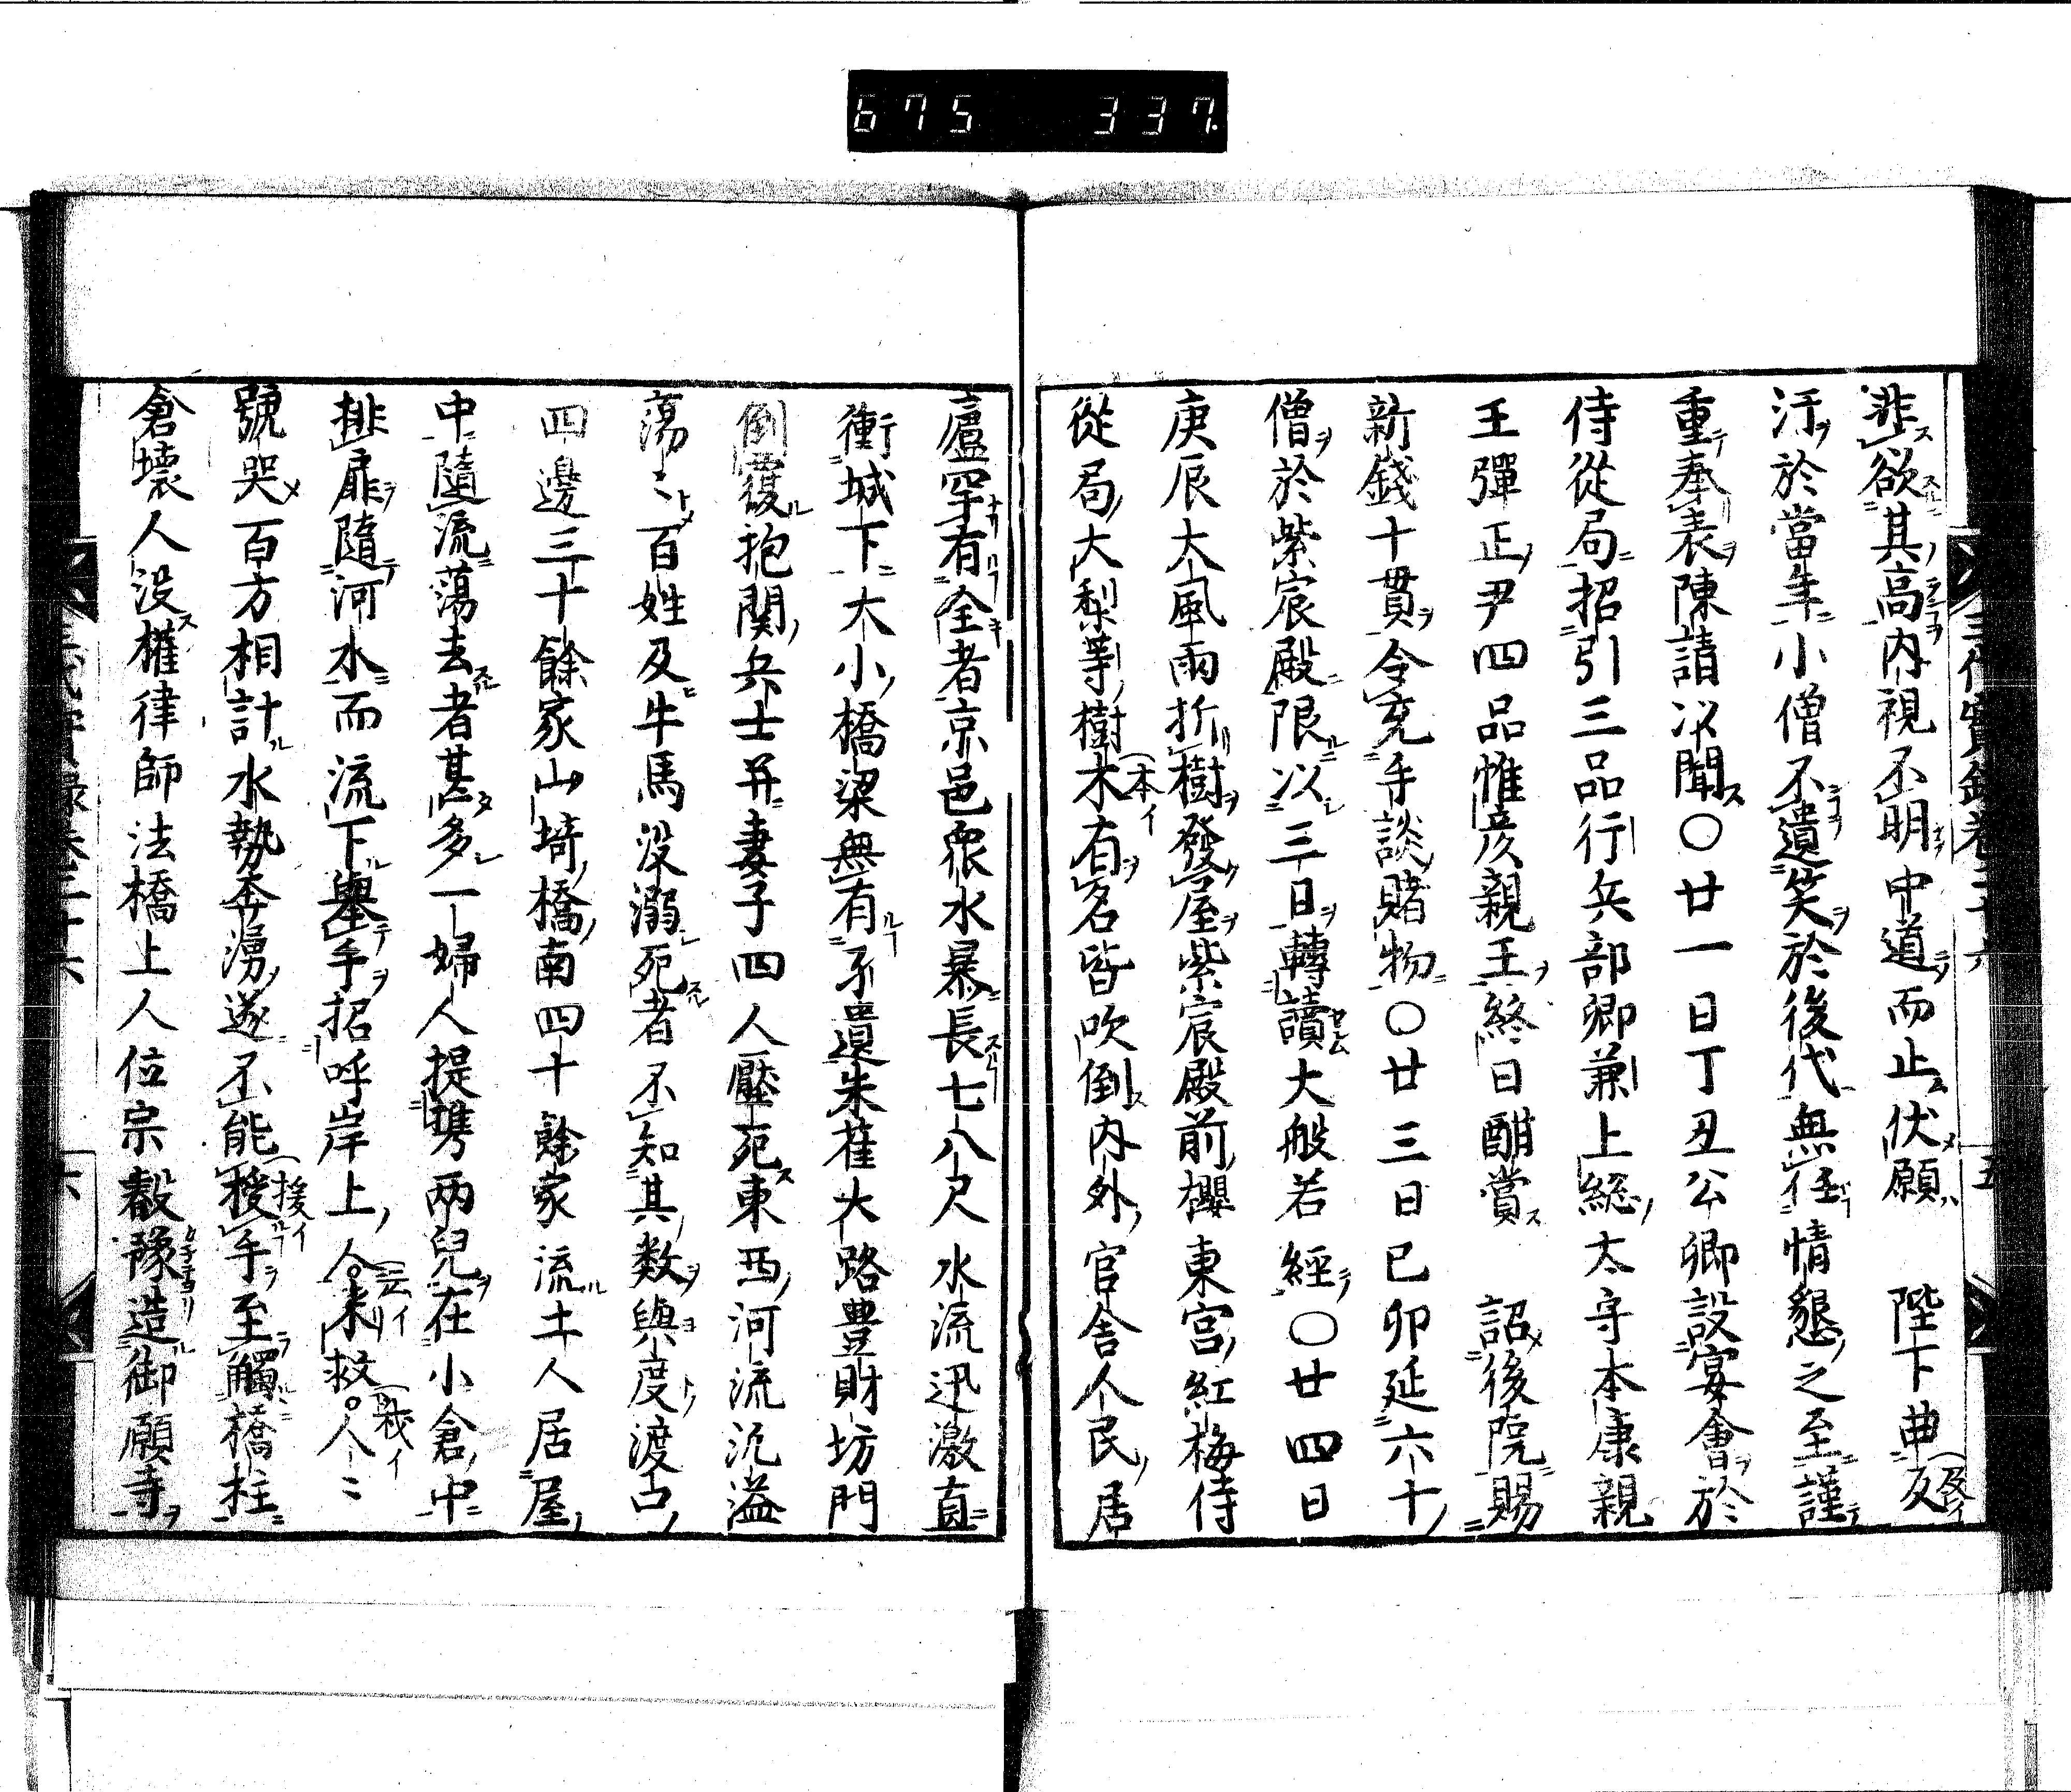 675 337
非欲其高内視不明中道而止伏願 陛下曲反
汙於當年小僧不遺笑於後代無任情懇之至謹
重奉表陳請以聞○廿一日丁丑公卿設宴會於
侍從局招引三品行兵部卿兼上総太守本康親
王彈正尹四品惟彦親王終日酣賞 詔後院賜
新錢十貫令充手談賭物○廿三日已卯延六十
僧於紫宸殿限以三日轉讀大般若經○廿四日
庚辰大風雨折樹發屋紫宸殿前櫻東宮紅梅侍
從局大梨等樹木有名皆吹倒内外官舍人民居
廬罕有全者京邑衆水暴長七八尺水流迅激直
衝城下大小橋梁無有孑遺朱雀大路豊財坊門
倒覆抱関兵士并妻子四人壓死東西河流汎溢
蕩〻百姓及牛馬没溺死者不知其数與度渡口
四邊三十餘家山埼橋南四十餘家流土人居屋
中隨流蕩去者甚多一婦人提携兩兒在小倉中
排扉隨河水而流下舉手招呼岸上人來救人〻
號哭百方相計水勢奔湧遂不能授手至觸橋柱
倉壞人没權律師法橋上人位宗叡豫造御願寺